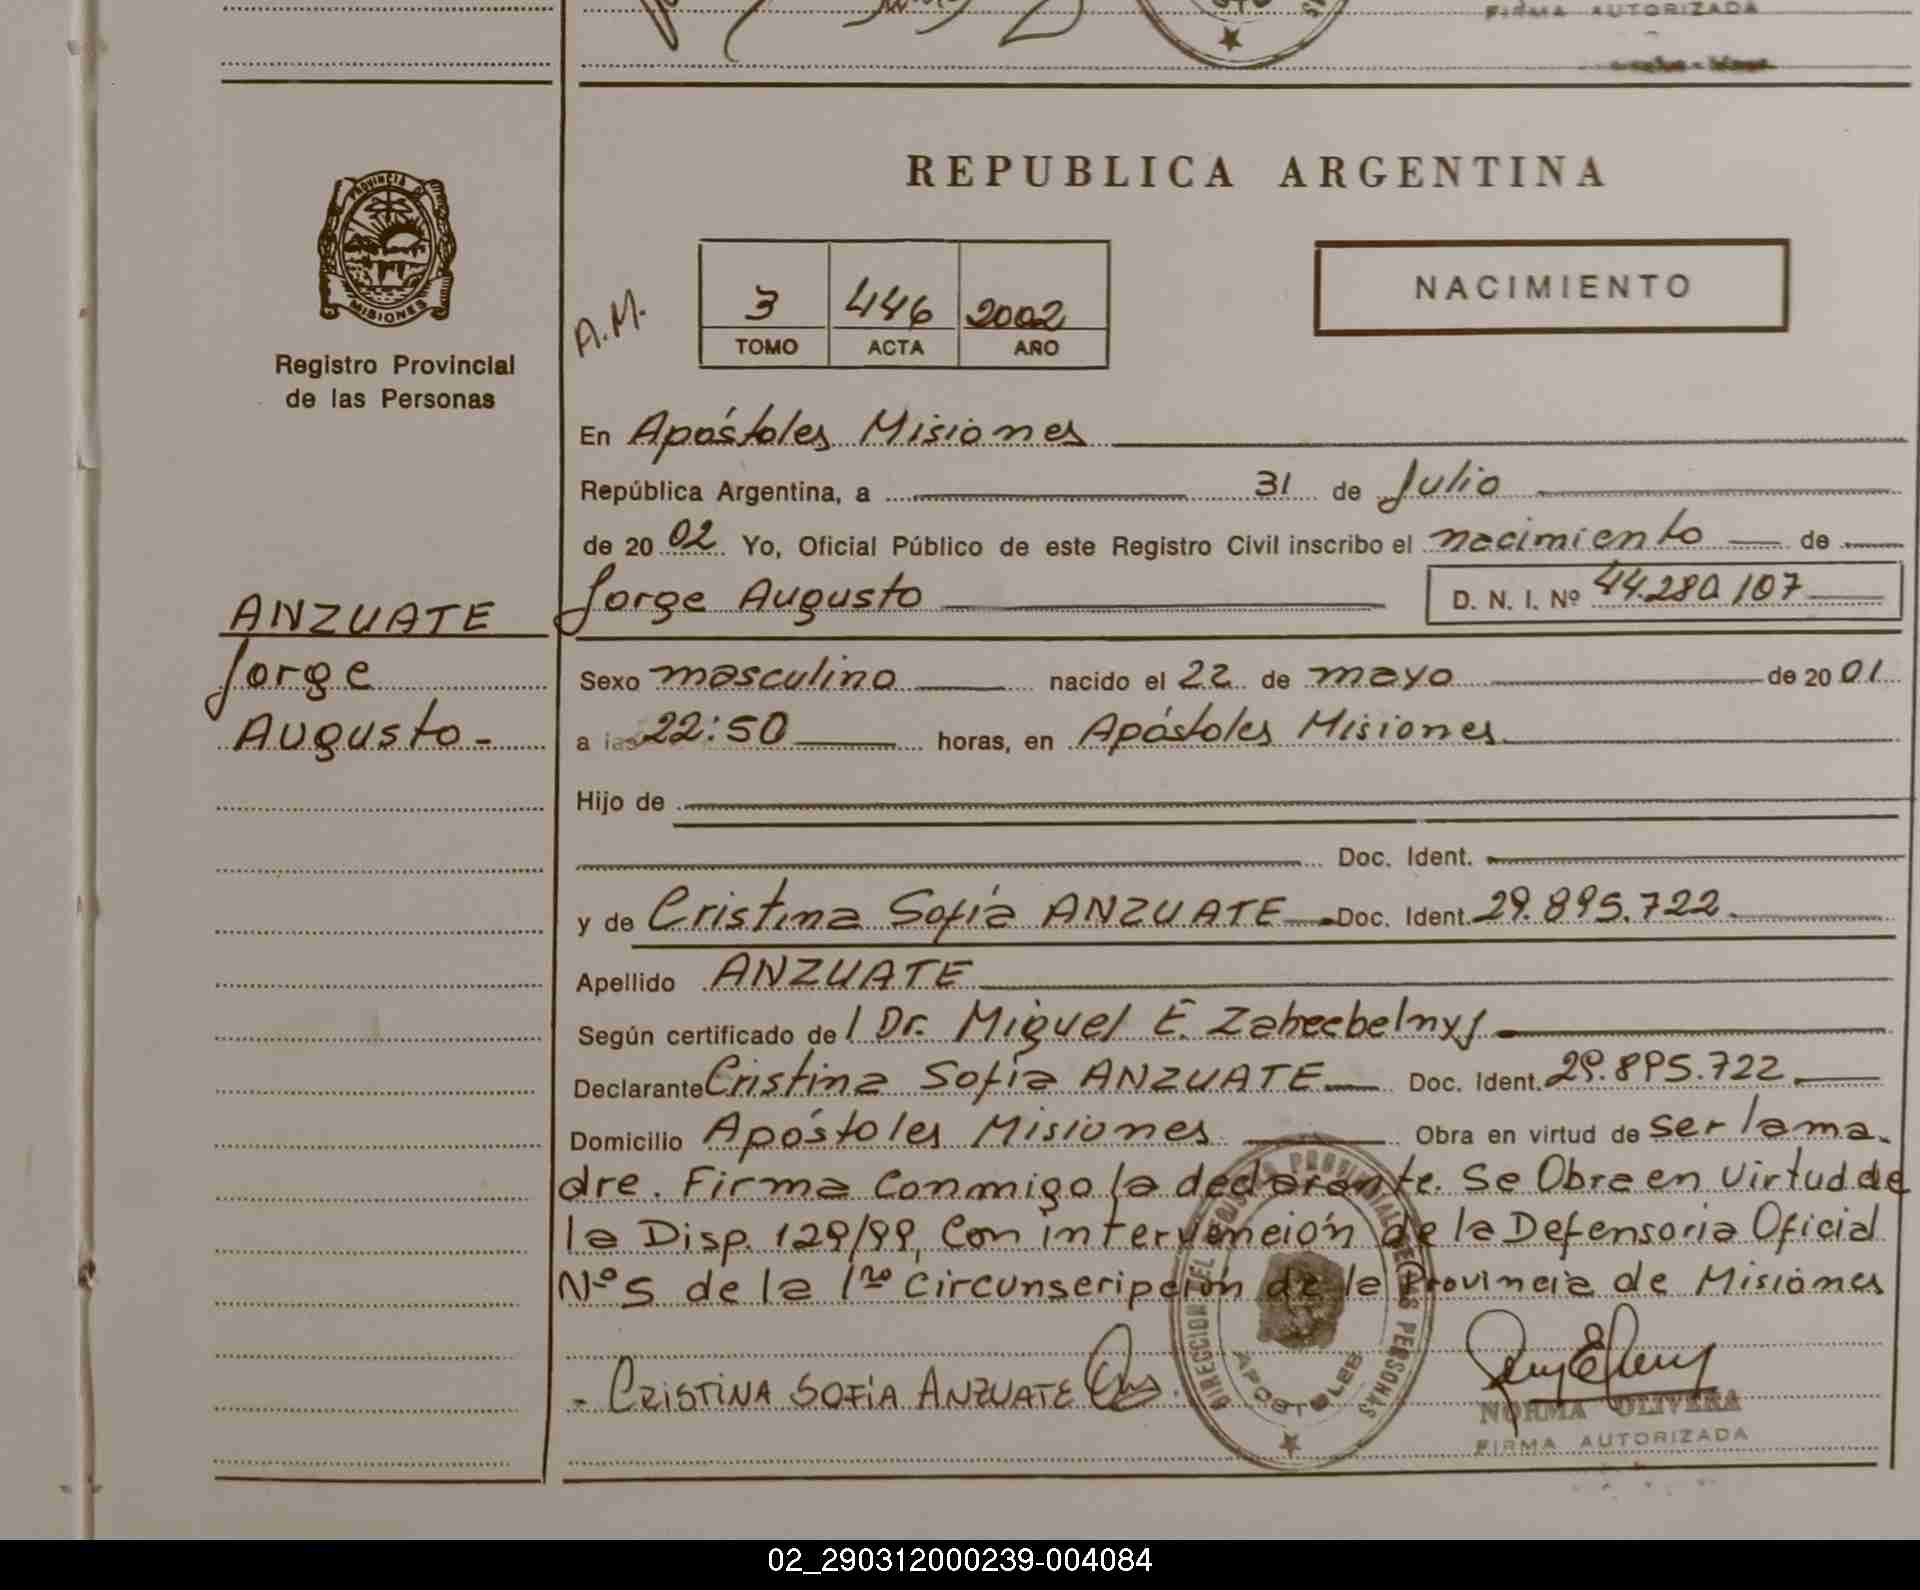 FIRMA AUTORIZADA
PROVINCIA DE
MISIONES
Registro Provincial
de las Personas
REPUBLICA ARGENTINA
NACIMIENTO
A.M.
3 446 2002
TOMO ACTA AÑO
En Apóstoles Misiones
República Argentina, a 31 de Julio
de 2002 Yo, Oficial Público de este Registro Civil inscribo el nacimiento de
Jorge Augusto D. N. I. Nº 44.280.107
ANZUATE
Jorge
Augusto -
Sexo masculino nacido el 22 de mayo de 2001
a las 22:50 horas, en Apóstoles Misiones
Hijo de
Doc. Ident.
y de Cristina Sofía ANZUATE Doc. Ident. 29.895.722
Apellido ANZUATE
Según certificado de / Dr. Miguel E.
Declarante Cristina Sofía ANZUATE Doc. Ident. 29.895.722
Domicilio Apóstoles Misiones Obra en virtud de ser la ma-
dre. Firma Conmigo la declarante. Se Obra en Virtud de
la Disp. 129/99, Con intervención de la Defensoria Oficial
Nº 5 de la 1ra Circunscripción de la Provincia de Misiones
- CRISTINA SOFÍA ANZUATE
DIRECCION DEL REGISTRO PROVINCIAL DE LAS PERSONAS
APOSTOLES
NORMA OLIVERA
FIRMA AUTORIZADA
02_290312000239-004084